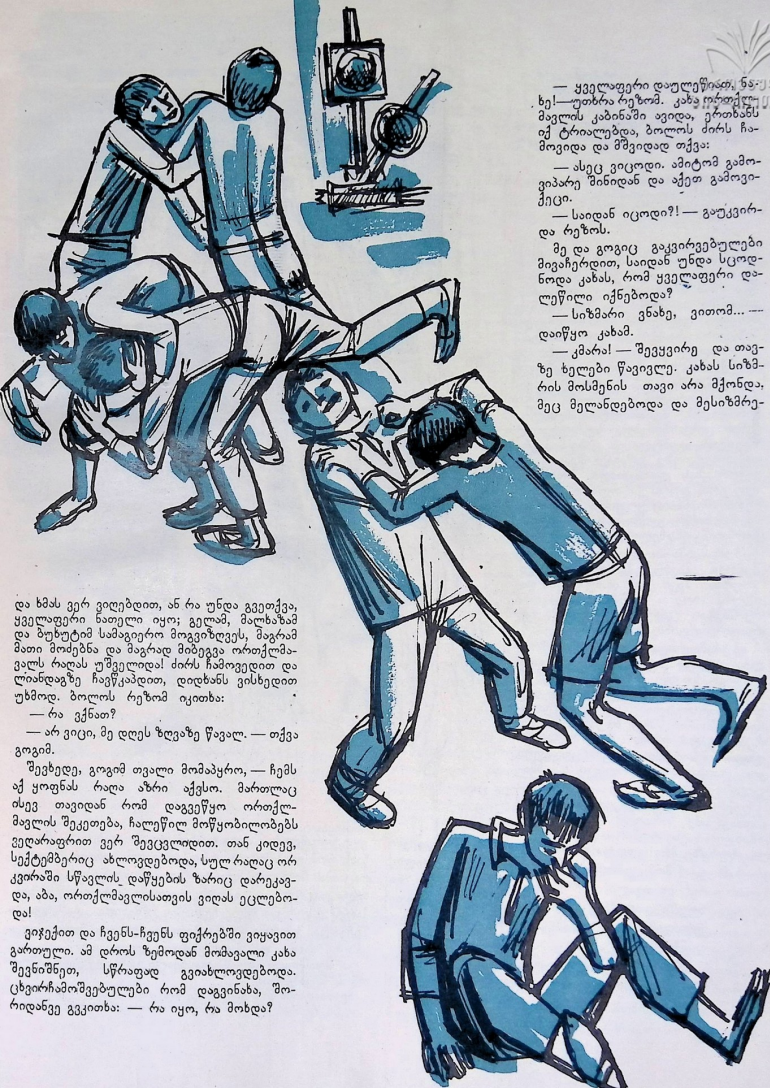 და ხმას ვერ ვიღებდით, ან რა უნდა გვეთქვა,
ყველაფერი ნათელი იყო; გელამ, მალხაზამ
და ბუხუტიმ სამაგიერო მოგვიზღვეს, მაგრამ
მათი მოძებნა და მაგრად მიბეგვა ორთქლმა-
ვალს რაღას უშველიდა! ძირს ჩამოვედით და
ლიანდაგზე ჩავწკაპდით, დიდხანს ვისხედით
უხმოდ. ბოლოს რეზომ იკითხა:
— რა ვქნათ?
— არ ვიცი, მე დღეს ზღვაზე წავალ. — თქვა
გოგიმ.
შევხედე, გოგიმ თვალი მომაპყრო, — ჩემს
აქ ყოფნას რაღა აზრი აქვსო. მართლაც
ისევ თავიდან რომ დაგვეწყო ორთქლ-
მავლის შეკეთება, ჩალეწილ მოწყობილობებს
ვეღარაფრით ვერ შევცვლიდით. თან კიდევ,
სექტემბერიც ახლოვდებოდა, სულ რაღაც ორ
კვირაში სწავლის დაწყების ზარიც დარეკავ-
და, აბა, ორთქლმავლისათვის ვიღას ეცლებო-
და!
ვიჯექით და ჩვენს-ჩვენს ფიქრებში ვიყავით
გართული. ამ დროს ზემოდან მომავალი კახა
შევნიშნეთ, სწრაფად გვიახლოვდებოდა.
ცხვირჩამოშვებულები რომ დაგვინახა, შო-
რიდანვე გვკითხა: — რა იყო, რა მოხდა?
— ყველაფერი დაულეწიათ, ნა-
ხე! — უთხრა რეზომ. კახა ორთქლ-
მავლის კაბინაში ავიდა, ერთხანს
იქ ტრიალებდა, ბოლოს ძირს ჩა-
მოვიდა და მშვიდად თქვა:
— ასეც ვიცოდი. ამიტომ გამო-
ვიპარე შინიდან და აქეთ გამოვი-
ქეცი.
— საიდან იცოდი?! — გაუკვირ-
და რეზოს.
მე და გოგიც გაკვირვებულები
მივაჩერდით, საიდან უნდა სცოდ-
ნოდა კახას, რომ ყველაფერი და-
ლეწილი იქნებოდა?
— სიზმარი ვნახე, ვითომ... —
დაიწყო კახამ.
— კმარა! — შევყვირე და თავ-
ზე ხელები წავივლე. კახას სიზმ-
რის მოსმენის თავი არა მქონდა,
მეც მელანდებოდა და მესიზმრე-